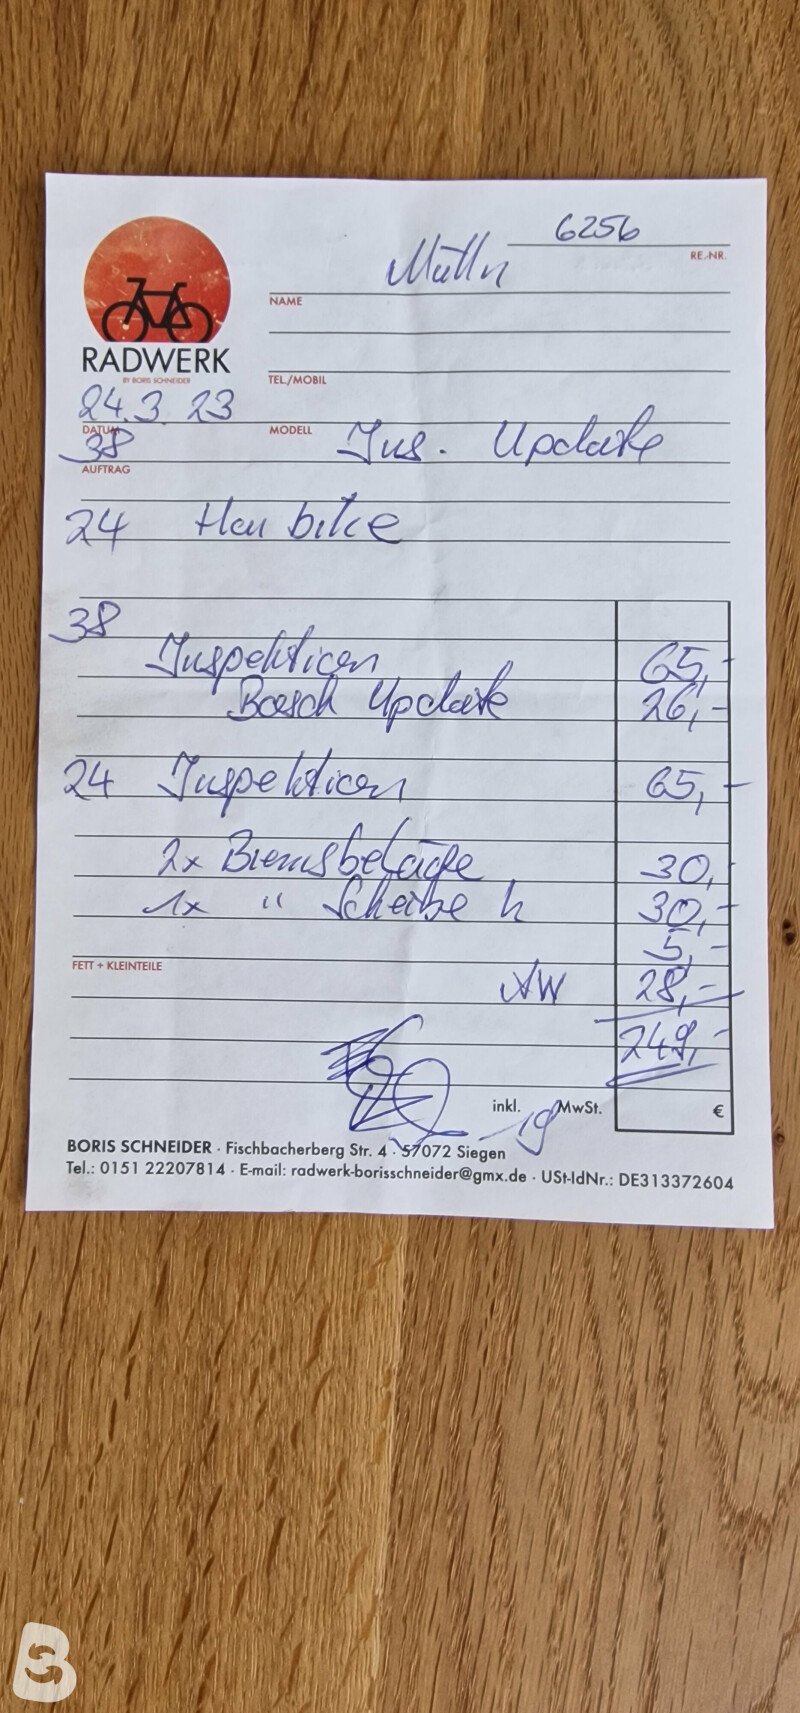 6256
RE.-NR.
Müller
NAME
RADWERK
BY BORIS SCHNEIDER
TEL./MOBIL
24.3.23
DATUM
MODELL
38 Ins. Update
AUFTRAG
24 Haibike
38
Inspektion 65,-
Bosch Update 26,-
24 Inspektion 65,-
2x Bremsbeläge 30,-
1x " Scheibe h 30,-
5,-
FETT + KLEINTEILE
AW 28,-
249,-
inkl. 19 MwSt. €
BORIS SCHNEIDER · Fischbacherberg Str. 4 · 57072 Siegen
Tel.: 0151 22207814 · E-mail: radwerk-borisschneider@gmx.de · USt-IdNr.: DE313372604